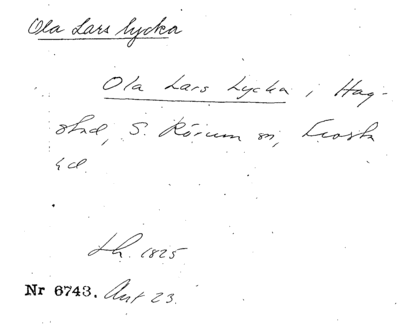 Ola Lars lycka
Ola Lars Lycka, Hag-
stad, S. Rörum sn, Frosta
hd.
Lh. 1825
Nr 6743. Ant 23.